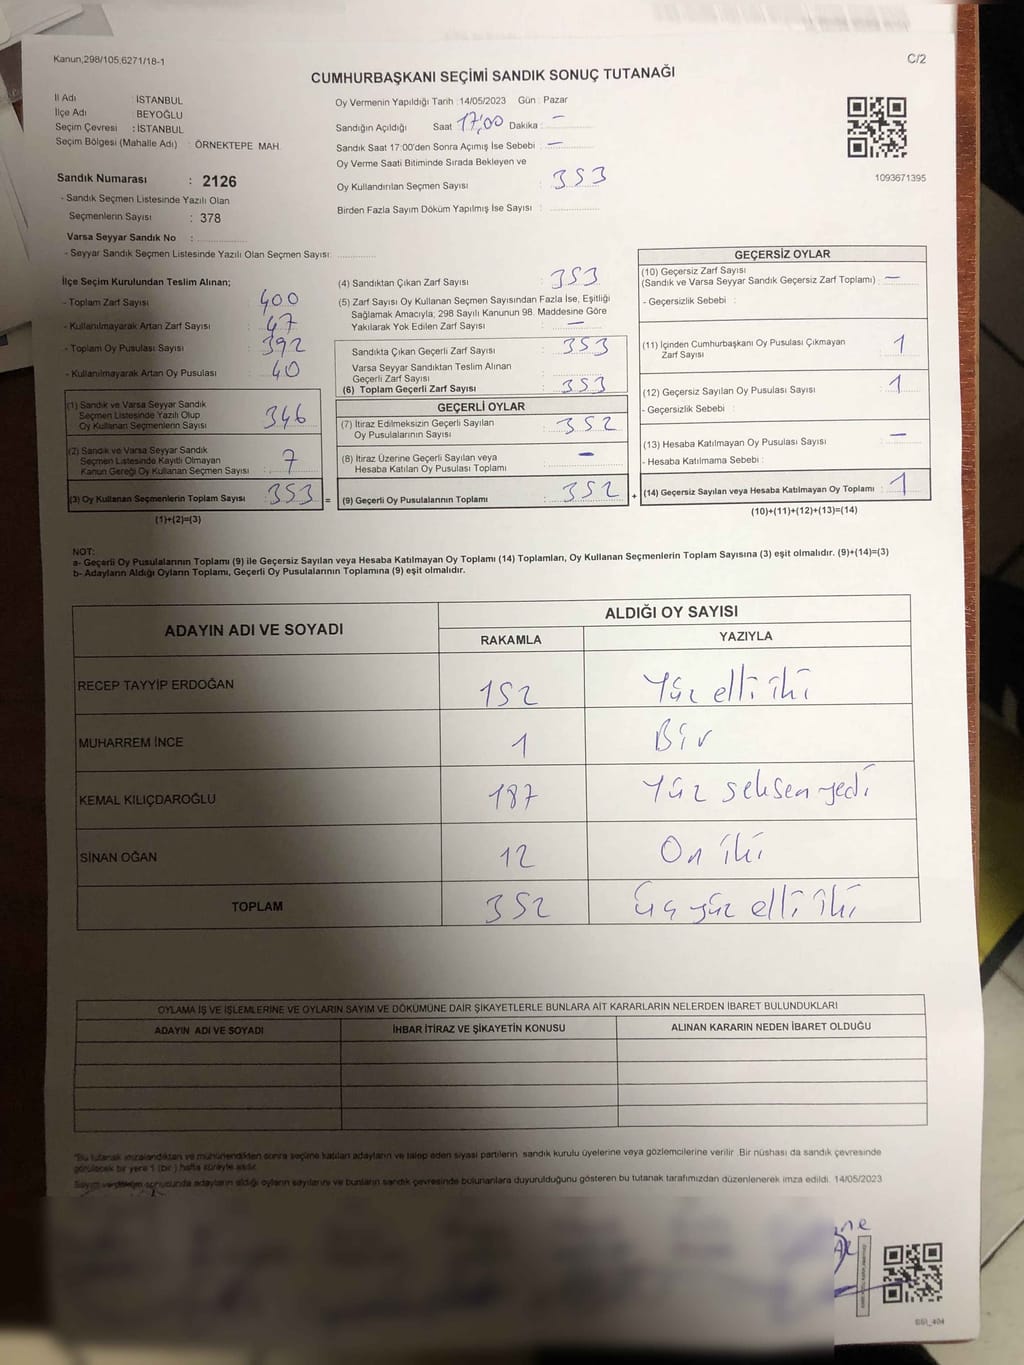 Kanun,298/105,6271/18-1
C/2
CUMHURBAŞKANI SEÇİMİ SANDIK SONUÇ TUTANAĞI
İl Adı : İSTANBUL
İlçe Adı : BEYOĞLU
Seçim Çevresi : İSTANBUL
Seçim Bölgesi (Mahalle Adı) : ÖRNEKTEPE MAH.
Sandık Numarası : 2126
- Sandık Seçmen Listesinde Yazılı Olan
Seçmenlerin Sayısı : 378
Varsa Seyyar Sandık No :
- Seyyar Sandık Seçmen Listesinde Yazılı Olan Seçmen Sayısı:
Oy Vermenin Yapıldığı Tarih :14/05/2023 Gün : Pazar
Sandığın Açıldığı Saat 17:00 Dakika : —
Sandık Saat 17:00'den Sonra Açımış İse Sebebi : —
Oy Verme Saati Bitiminde Sırada Bekleyen ve
Oy Kullandırılan Seçmen Sayısı : 353
Birden Fazla Sayım Döküm Yapılmış İse Sayısı :
1093671395
İlçe Seçim Kurulundan Teslim Alınan;
- Toplam Zarf Sayısı : 400
- Kullanılmayarak Artan Zarf Sayısı : 47
- Toplam Oy Pusulası Sayısı : 392
- Kullanılmayarak Artan Oy Pusulası : 40
(1) Sandık ve Varsa Seyyar Sandık
Seçmen Listesinde Yazılı Olup
Oy Kullanan Seçmenlerin Sayısı : 346
(2) Sandık ve Varsa Seyyar Sandık
Seçmen Listesinde Kayıtlı Olmayan
Kanun Gereği Oy Kullanan Seçmen Sayısı : 7
(3) Oy Kullanan Seçmenlerin Toplam Sayısı : 353 =
(1)+(2)=(3)
(4) Sandıktan Çıkan Zarf Sayısı : 353
(5) Zarf Sayısı Oy Kullanan Seçmen Sayısından Fazla İse, Eşitliği
Sağlamak Amacıyla; 298 Sayılı Kanunun 98. Maddesine Göre
Yakılarak Yok Edilen Zarf Sayısı : —
Sandıkta Çıkan Geçerli Zarf Sayısı : 353
Varsa Seyyar Sandıktan Teslim Alınan
Geçerli Zarf Sayısı :
(6) Toplam Geçerli Zarf Sayısı : 353
GEÇERLİ OYLAR
(7) İtiraz Edilmeksizin Geçerli Sayılan
Oy Pusulalarının Sayısı : 352
(8) İtiraz Üzerine Geçerli Sayılan veya
Hesaba Katılan Oy Pusulası Toplamı : —
(9) Geçerli Oy Pusulalarının Toplamı : 352 +
GEÇERSİZ OYLAR
(10) Geçersiz Zarf Sayısı
(Sandık ve Varsa Seyyar Sandık Geçersiz Zarf Toplamı) : —
- Geçersizlik Sebebi :
(11) İçinden Cumhurbaşkanı Oy Pusulası Çıkmayan
Zarf Sayısı : 1
(12) Geçersiz Sayılan Oy Pusulası Sayısı : 1
- Geçersizlik Sebebi :
(13) Hesaba Katılmayan Oy Pusulası Sayısı : —
- Hesaba Katılmama Sebebi :
(14) Geçersiz Sayılan veya Hesaba Katılmayan Oy Toplamı : 1
(10)+(11)+(12)+(13)=(14)
NOT:
a- Geçerli Oy Pusulalarının Toplamı (9) ile Geçersiz Sayılan veya Hesaba Katılmayan Oy Toplamı (14) Toplamları, Oy Kullanan Seçmenlerin Toplam Sayısına (3) eşit olmalıdır. (9)+(14)=(3)
b- Adayların Aldığı Oyların Toplamı, Geçerli Oy Pusulalarının Toplamına (9) eşit olmalıdır.
ADAYIN ADI VE SOYADI
ALDIĞI OY SAYISI
RAKAMLA YAZIYLA
RECEP TAYYİP ERDOĞAN 152 Yüz elli iki
MUHARREM İNCE 1 Bir
KEMAL KILIÇDAROĞLU 187 Yüz seksen yedi
SİNAN OĞAN 12 On iki
TOPLAM 352 üç yüz elli iki
OYLAMA İŞ VE İŞLEMLERİNE VE OYLARIN SAYIM VE DÖKÜMÜNE DAİR ŞİKAYETLERLE BUNLARA AİT KARARLARIN NELERDEN İBARET BULUNDUKLARI
ADAYIN ADI VE SOYADI İHBAR İTİRAZ VE ŞİKAYETİN KONUSU ALINAN KARARIN NEDEN İBARET OLDUĞU
*Bu tutanak imzalandıktan ve mühürlendikten sonra seçime katılan adayların ve talep eden siyasi partilerin sandık kurulu üyelerine veya gözlemcilerine verilir. Bir nüshası da sandık çevresinde
görülecek bir yere 1 (bir) hafta süreyle asılır.
Sayım ve döküm sonucunda adayların aldığı oyların sayılarını ve bunların sandık çevresinde bulunanlara duyurulduğunu gösteren bu tutanak tarafımızdan düzenlenerek imza edildi. 14/05/2023